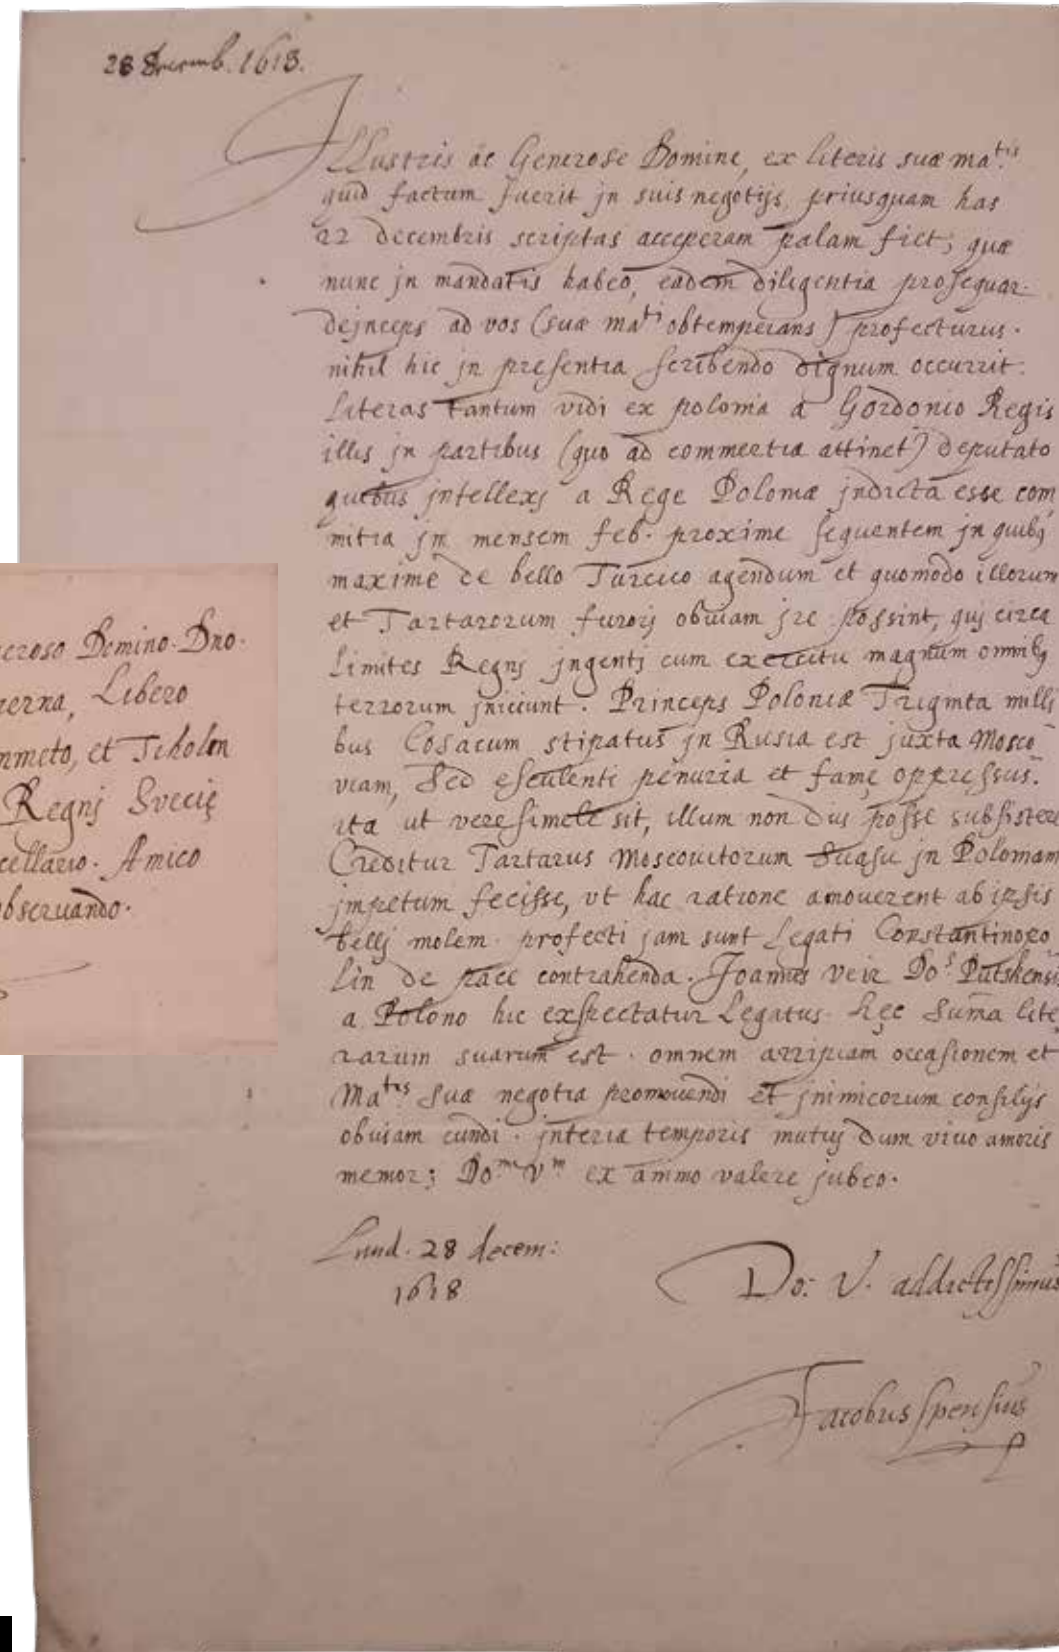 28 Decemb. 1618.
Illustris ac Generose Domine, ex literis suæ ma.tis
quid factum fuerit jn suis negotijs, priusquam has
22 decembris scriptas acceperam palam fiet; quæ
nunc jn mandatis habeo, eadem diligentia prosequar.
dejnceps ad vos (suæ ma.ti obtemperans) profecturus.
nihil hic jn presentia scribendo dignum occurrit.
Literas tantum vidi ex polonia a Gordonio Regis
illis jn partibus (quo ad commertia attinet) deputato
quibus jntellexj a Rege Poloniæ jndicta esse com
mitia jn mensem feb. proxime sequentem jn quibq
maxime de bello Turcico agendum et quomodo illorum
et Tartarorum furorj obuiam jre possint, quj circa
limites Regnj jngentj cum exercitu magnum omnibq
terrorum jniciunt. Princeps Poloniæ Triginta milli
bus Cosacum stipatus jn Rusia est juxta Mosco
viam, sed esculenti penuria et famę oppressus.
ita ut veresimele sit, illum non dius posse subsistere
Creditur Tartarus Moscouitorum suasu jn Poloniam
jmpetum fecisse, vt hac ratione amouerent ab ipsis
bellj molem. profecti jam sunt Legati Constantinopo
lin de pace contrahenda. Joannes veir Do.s Putskensis
a Polono hic exspectatur Legatus. hęc suma lite
rarum suarum est. omnem arripiam occasionem et
Ma.tis suæ negotia promouendi et jnimicorum consilijs
obuiam eundi. jnteria temporis mutuj dum viuo amoris
memor; Do.nem V.m ex animo valere jubeo.
Lund. 28 decem:
1618
Do: V. addictissimus
Jacobus Spensius
eroso Domino Dno.
erna, Libero
mmeto, et Tcholen
Regnj Svecię
cellario. Amico
bseruando.